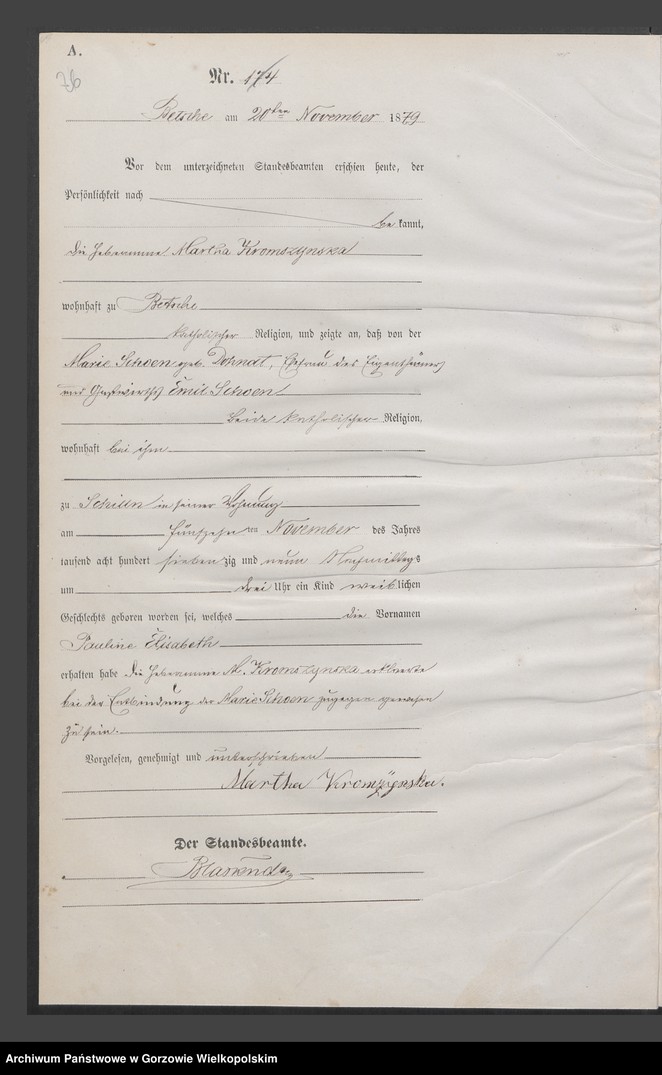 A.
76
Nr. 174
Betsche am 20ten November 1879
Vor dem unterzeichneten Standesbeamten erschien heute, der
Persönlichkeit nach
be kannt,
die Hebamme Martha Kromszynska
wohnhaft zu Betsche
katholischer Religion, und zeigte an, daß von der
Marie Schoen geb. Dohnat, Ehefrau des Eigenthümers
und Gastwirths Emil Schoen
beide katholischer Religion,
wohnhaft bei ihm
zu Schilln in seiner Wohnung
am fünfzehnten November des Jahres
tausend acht hundert siebenzig und neun Nachmittags
um drei Uhr ein Kind weiblichen
Geschlechts geboren worden sei, welches die Vornamen
Pauline Elisabeth
erhalten habe Die Hebamme M. Kromszynska erklaerte
bei der Entbindung der Marie Schoen zugegen gewesen
zu sein.
Vorgelesen, genehmigt und unterschrieben
Martha Kromzÿnska.
Der Standesbeamte.
Archiwum Państwowe w Gorzowie Wielkopolskim